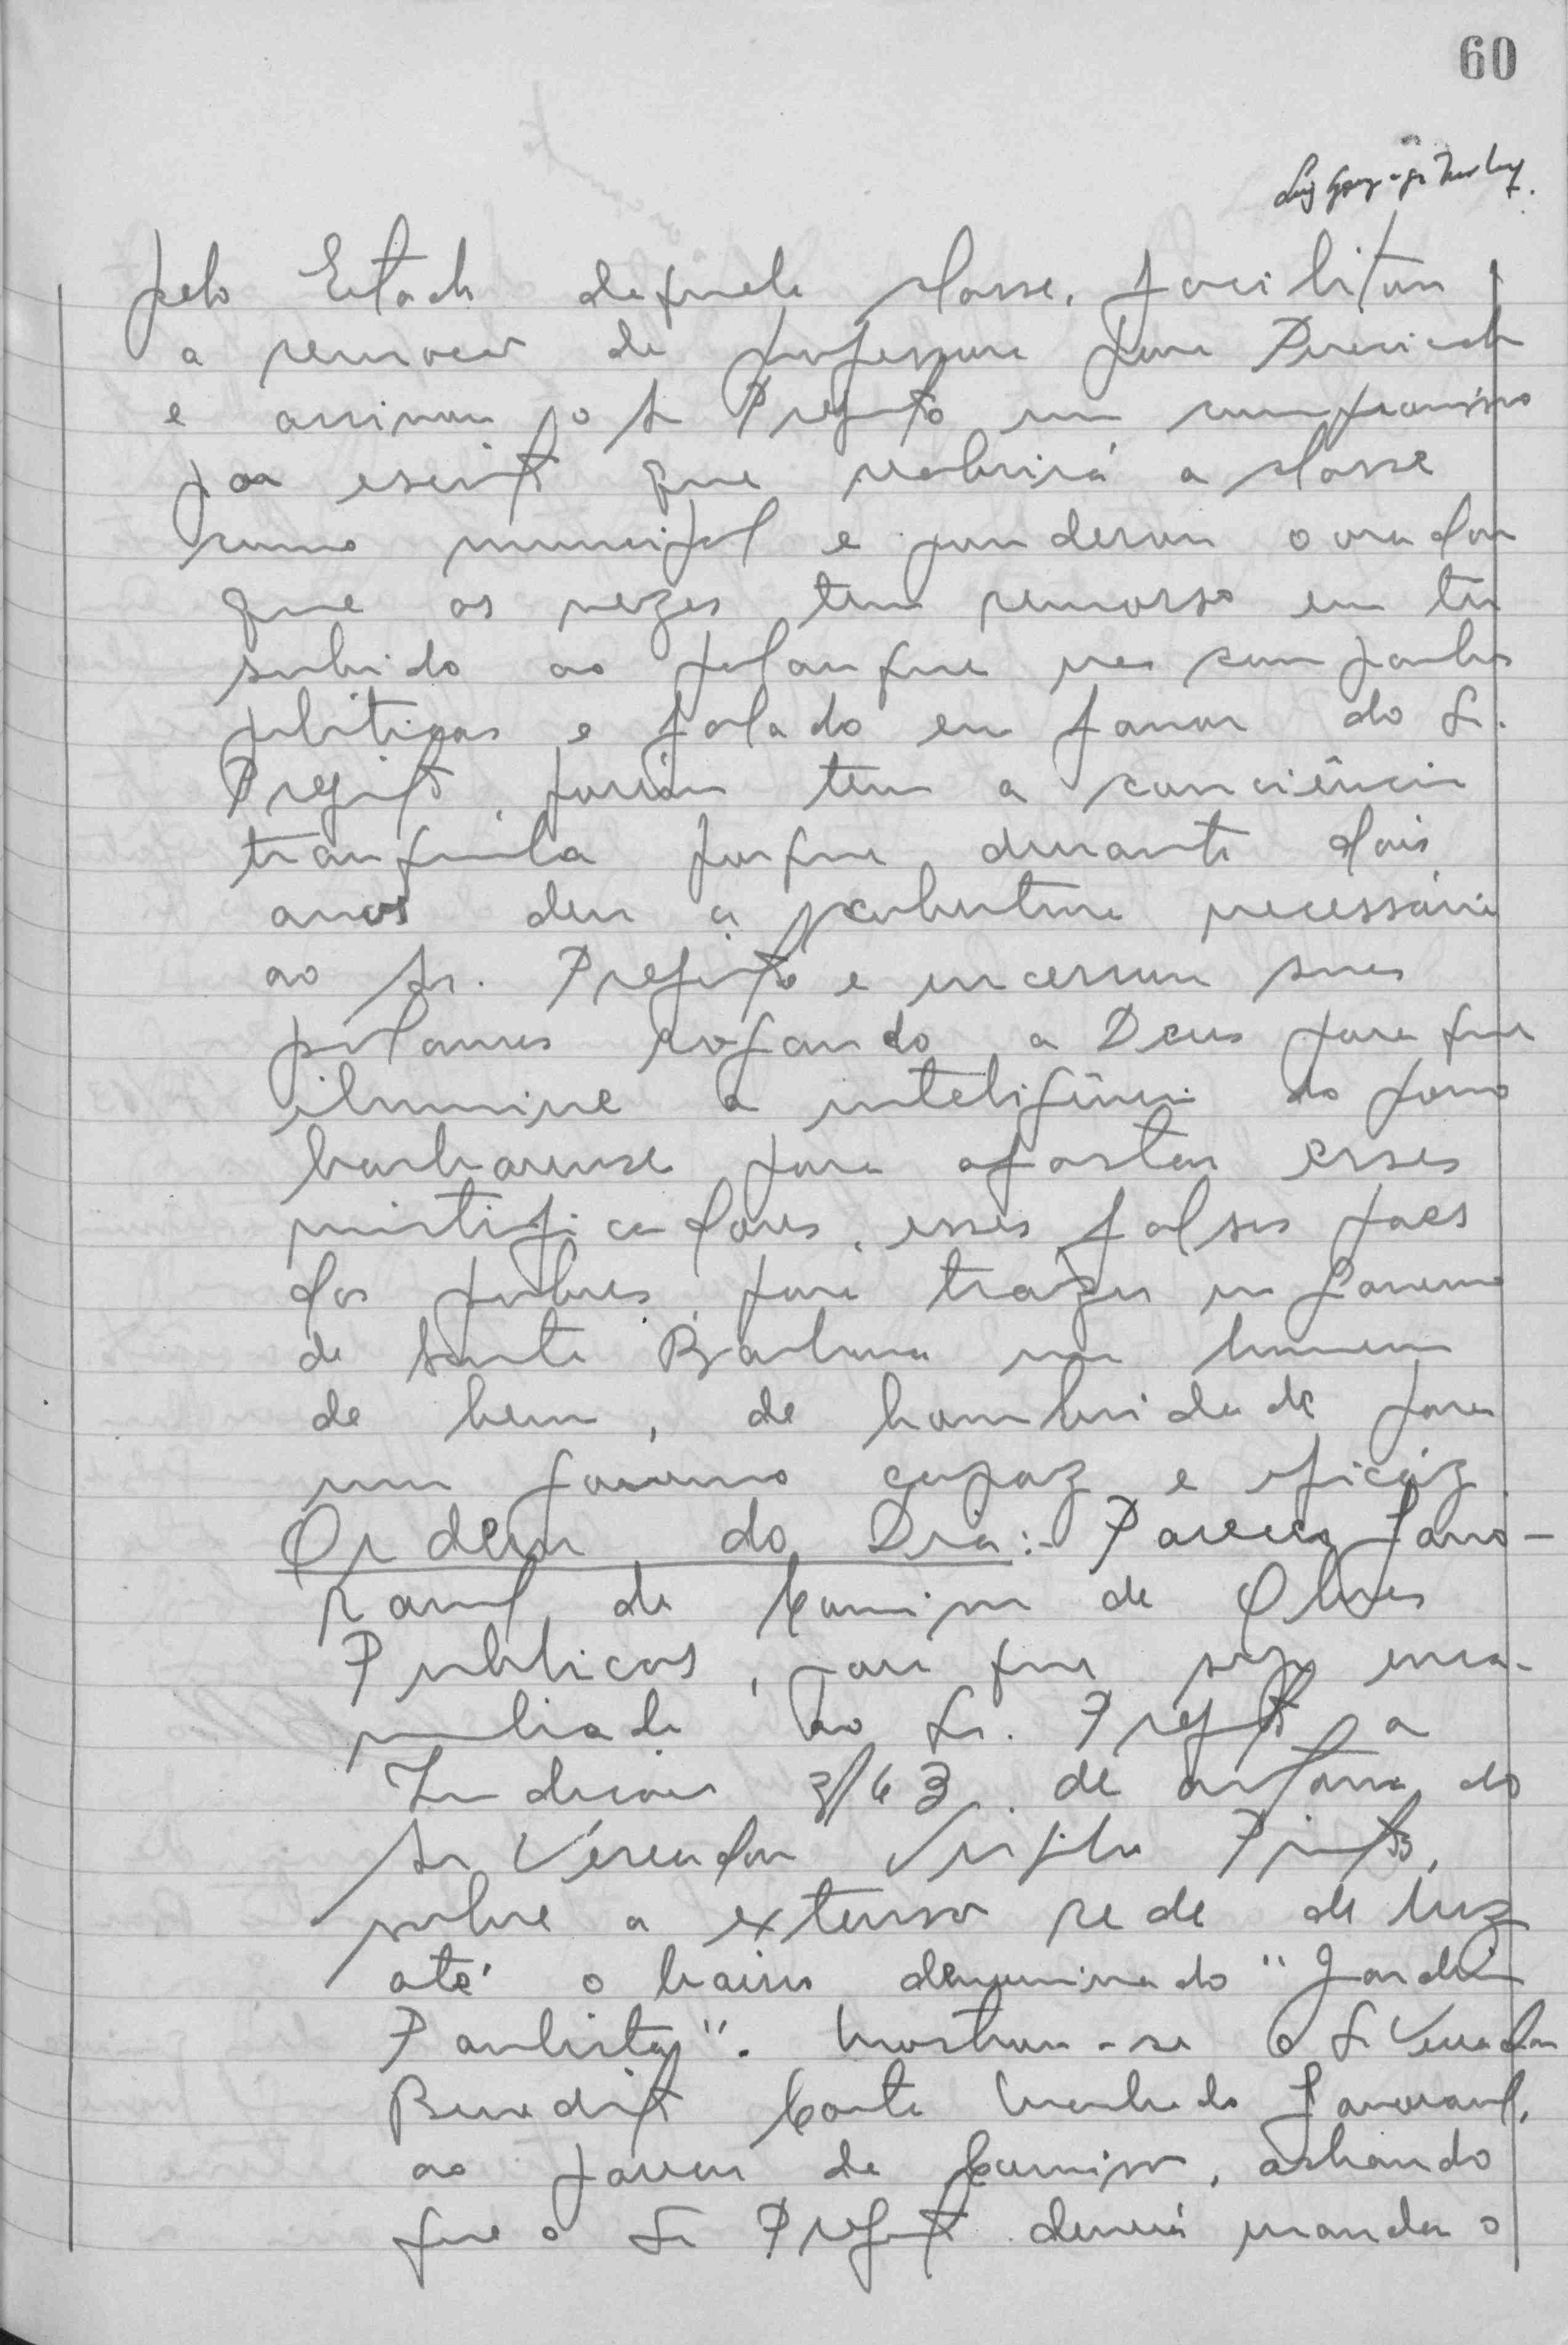 60
pelo Estado daquela classe, facilitou
a remoção da professora para Piracicaba
e assinou o Sr Prefeito um compromisso
por escrito que reabrirá a classe
como municipal e ponderou o orador
que as vezes tem remorso em ter
subido ao palanque nas campanhas
politicas e falado em favor do Sr.
Prefeito, porém tem a conciência
tranquila porque durante dois
anos deu a cobertura necessária
ao Sr. Prefeito e encerrou suas
palavras rogando a Deus para que
ilumine a inteligência do povo
barbarense para afastar esses
mistificadores, esses falsos paes
dos pobres, para trazer no Governo
de Santa Barbara um homem
de bem, de hombridade para
um governo capaz e eficáz.
Ordem do Dia:- Parecer favo-
ravel da Comissão de Obras
Publicas, para que seja enca-
minhada ao Sr. Prefeito a
Indicação 3/63, de autoria do
Sr Vereador Virgilio Pinto,
sobre a extensão rede de luz
até o bairro denominado "Jardim
Paulista". Mostrou-se o Sr Vereador
Benedito Costa Machado favoravel,
ao parecer da Comissão, achando
que o Sr Prefeito deverá mandar o